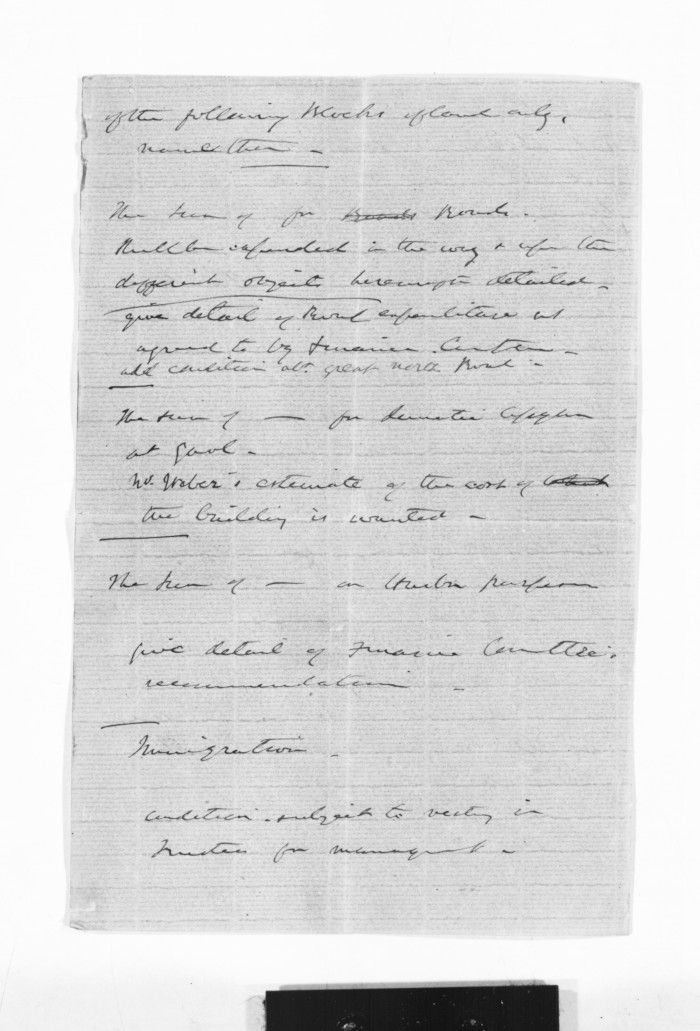 of the following Blocks of land only,
name them -
The sum of for Roads Roads.
Shall be expended in the way & upon the
different objects hereinafter detailed -
give detail of Road expenditure as
agreed to by Finance Com'tee -
add condition abt. great north Road -
The sum of — for Lunatic Asylum
at Gaol -
Mr. Weber's estimate of the cost of
the building is wanted -
The sum of — on Harbor purposes
give detail of Finance Com'ttee's
recommendation -
Immigration -
condition - subject to vesting in
Trustees for management -